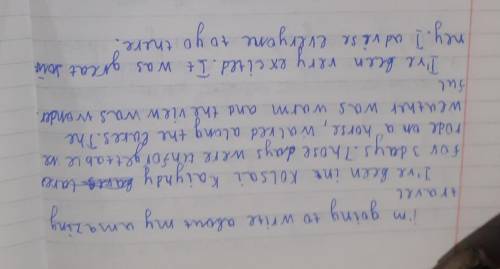 i'm going to write about my amazing
travel
I've been int Kolsai Kaiyndy lakes
for 3 days. Those days were unforgettable we
rode on a horse, walked along the lakes. The
weather was warm and the view was wonder-
ful
I've been very excited. It was great jour
ney. I advise everyone to go there.